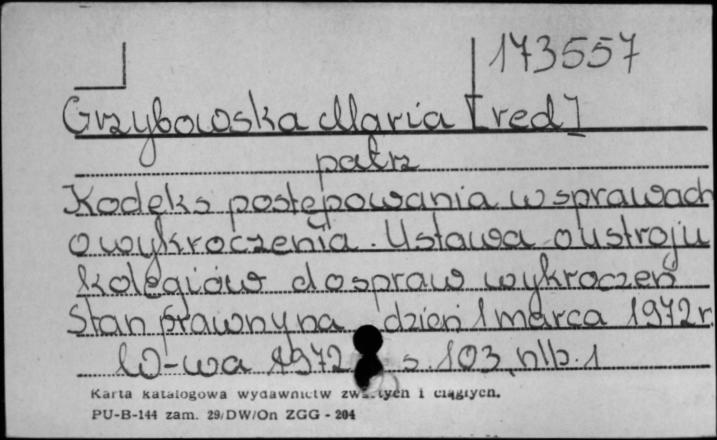 173557
Grzybowska Maria [red]
patrz
Kodeks postępowania w sprawach
o wykroczenia. Ustawa o ustroju
kolegiów do spraw wykroczeń
Stan prawny na dzień 1 marca 1972 r.
W-wa 1972 s. 103, nlb. 1
Karta katalogowa wydawnictw zwartych i ciągłych.
PU-B-144 zam. 29/DW/On ZGG - 204